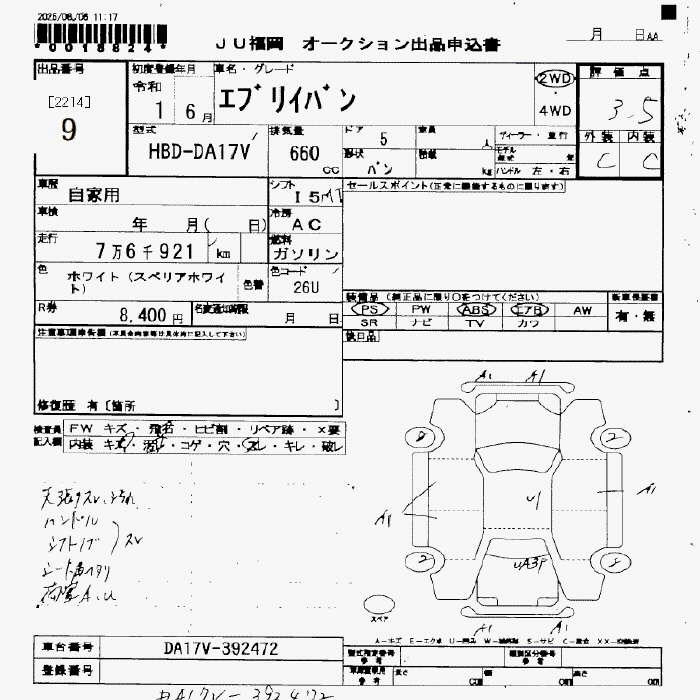 2025/08/06 11:17
*0018824*
JU福岡 オークション出品申込書
月 日 AA
出品番号
[2214]
9
初度登録年月
令和
1 6月
車名・グレード
エブリイバン
2WD
4WD
評価点
3.5
外装 内装
C C
型式
HBD-DA17V
排気量
660
cc
ドア
5
形状
バン
積載
kg
ディーラー・並行
モデル
ハンドル 左・右
車歴
自家用
シフト
I5MT
セールスポイント(正常に機能するものに限ります)
車検
年 月( 日)
冷房
AC
走行
7万6千921 km
燃料
ガソリン
色
ホワイト(スペリアホワイト)
色替
色コード
26U
R券
8,400円
名変通知期限
月 日
装備品(純正品に限り○をつけてください)
PS PW ABS エアB AW
SR ナビ TV カワ
新車保証書
有・無
後日品
注意事項車告欄
修復歴 有〔箇所 〕
検査員
記入欄
FW キズ・飛石・ヒビ割・リペア跡・×要
内装 キズ・汚れ・コゲ・穴・スレ・キレ・破レ
ハンドル
シフトノブ
スレ
A1 A1
2
U1
A1
A1
2
UA3P
A1 A1
スペア
車台番号
DA17V-392472
登録番号
型式指定番号
参考
類別区分番号
参考
長さ
cm
幅
cm
高さ
cm
DA17V-392472